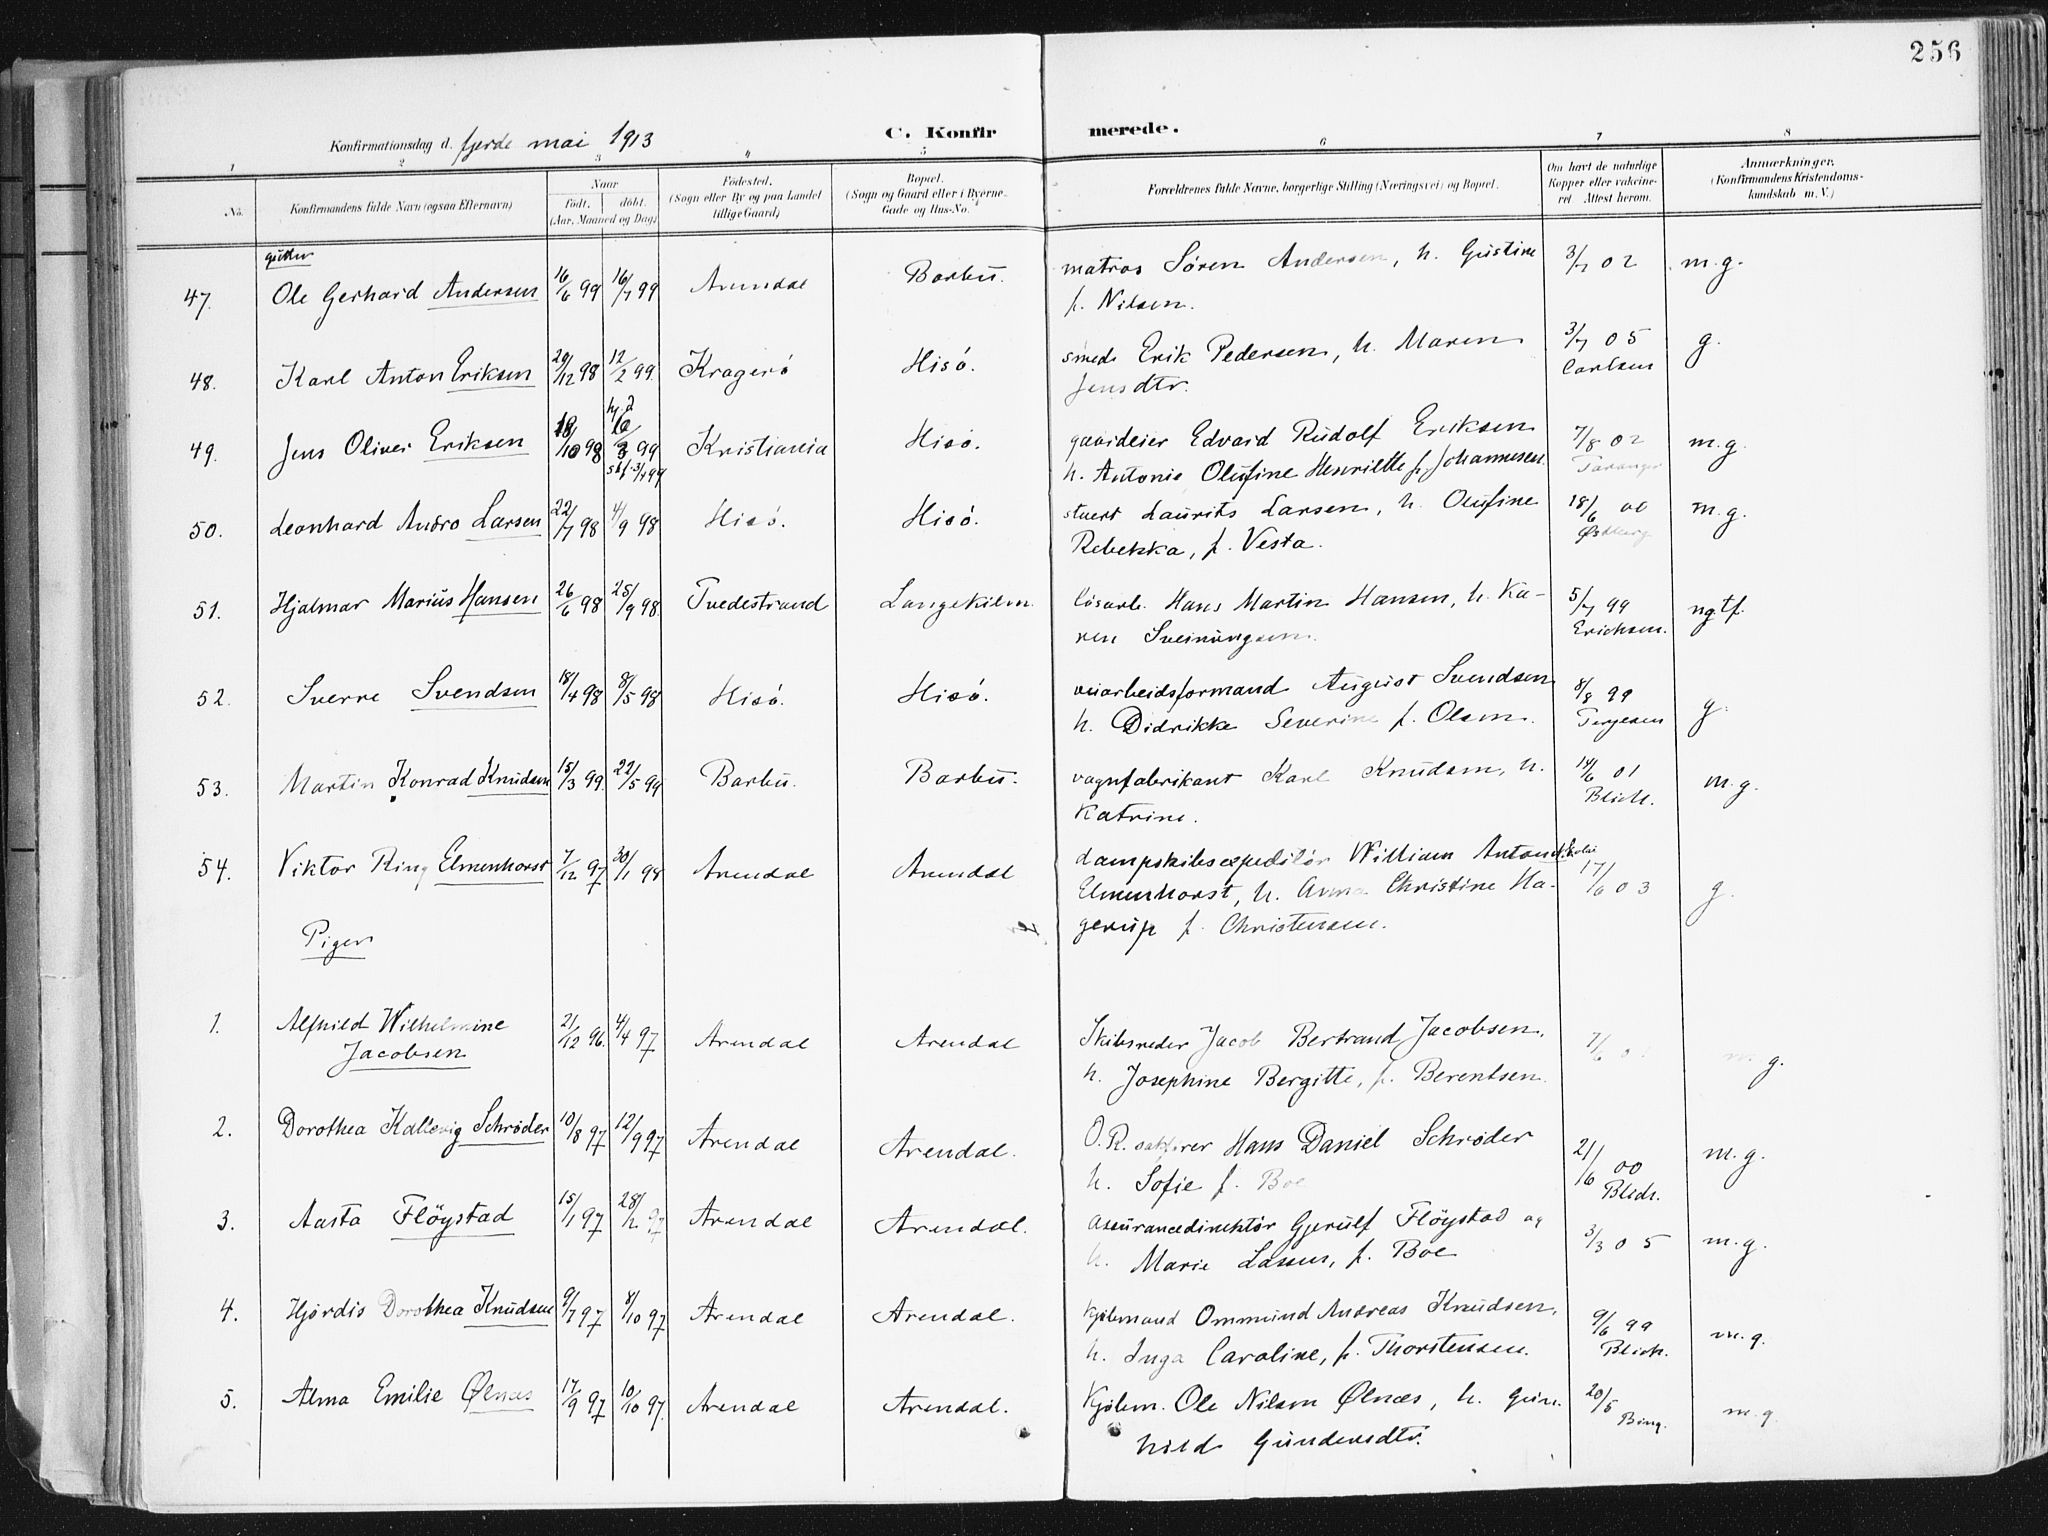 256
Konfirmationsdag d. fjerde mai 1913
C. Konfirmerede.
1 2 3 4 5 6 7 8
No.
Konfirmandens fulde Navn (ogsaa Efternavn)
Naar
födt. döbt.
(Aar, Maaned og Dag)
Födested.
(Sogn eller By og paa Landet
tillige Gaard)
Bopæl.
(Sogn og Gaard eller i Byerne
Gade og Hus-No.
Forældrenes fulde Navne, borgerlige Stilling (Næringsvei) og Bopæl.
Om havt de naturlige
Kopper eller vakcine-
ret Attest herom.
Anmærkninger.
(Konfirmandens Kristendoms-
kundskab m. V.)
gutter
47. Ole Gerhard Andersen 16/6 99 16/7 99 Arendal Barbu. matros Sören Andersen, h. Gustine 3/7 02 m.g.
f. Nilsen.
48. Karl Anton Eriksen 29/12 98 12/2 99. Kragerö Hisö. smed Erik Pedersen, h. Maren 3/7 05 g.
Jensdtr. Carlsen
49. Jens Oliver Eriksen 18/10 98 99 Kristiania Hisö. gaardeier Edvard Rudolf Eriksen 7/8 02 m.g.
h. Antonie Olufine Henriette f. Johannesen
50. Leonhard Andro Larsen 22/7 98 4/9 98 Hisö. Hisö. stuert Laurits Larsen, h. Olufine 18/6 00 m.g.
Rebekka, f. Vesta.
51. Hjalmar Marius Hansen 26/6 98 25/9 98 Tvedestrand Langekilen. lösarb. Hans Martin Hansen, h. Ka- 5/7 99 ngtf.
ren Sveinungsen. Erichsen.
52. Sverre Svendsen 18/4 98 8/5 98 Hisö. Hisö. veiarbeidsformand August Svendsen 8/8 99 g.
h. Didrikke Severine f. Olsen. Terjesen
53. Martin Konrad Knudsen 15/3 99. 22/5 99 Barbu. Barbu. vognfabrikant Karl Knudsen, h. 14/6 01 m.g.
Katrine. Blich.
54. Viktor Ring Elmenhorst 7/12 97 30/1 98 Arendal Arendal dampskibsexpeditör William Anton Nikolai
Elmenhorst, h. Anna Christine Ha- 17/6 03 g.
gerup f. Christensen.
Piger
1. Alfhild Wilhelmine 21/12 96. 4/4 97 Arendal Arendal Skibsreder Jacob Bertrand Jacobsen, 7/6 m.g.
Jacobsen h. Josephine Bergitte, f. Berentsen.
2. Dorothea Kallevig Schröder 10/8 97 12/9 97 Arendal Arendal. O.R. sakförer Hans Daniel Schröder 21/6 00 m.g.
h. Sofie f. Boe Blich.
3. Aasta Flöystad 15/1 97 28/2 97 Arendal Arendal. assurancedirektör Gjerulf Flöystad og 3/3 05 m.g.
h. Marie Lassen, f. Boe
4. Hjördis Dorothea Knudsen 9/7 97 8/10 97 Arendal Arendal. Kjölmand Ommund Andreas Knudsen, 9/6 99 m.g.
h. Inga Caroline, f. Thorstensen. Blich.
5. Alma Emilie Ølnæs 17/9 97 10/10 97. Arendal Arendal. Kjölm. Ole Nilsen Ølnæs, h. Gun- 20/5 m.g.
hild Gundersdtr. Bing.